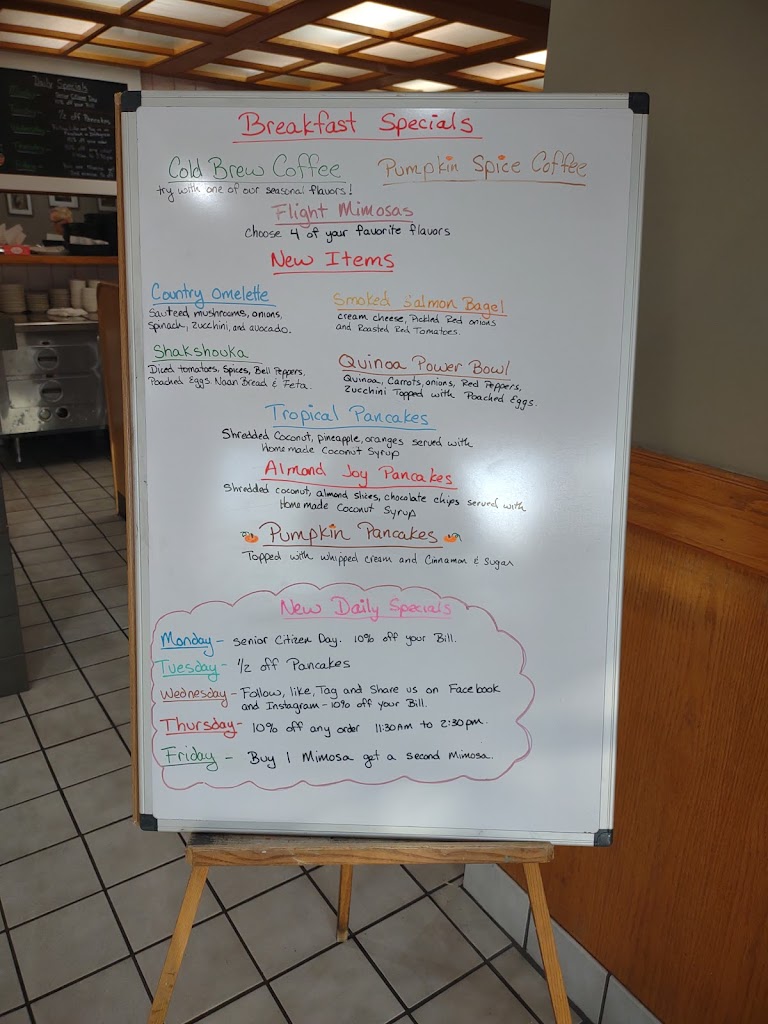 Daily Specials
Breakfast Specials
Cold Brew Coffee
try with one of our seasonal flavors!
Pumpkin Spice Coffee
Flight Mimosas
Choose 4 of your favorite flavors
New Items
Country Omelette
Sauteed mushrooms, onions,
Spinach, Zucchini, and avocado.
Smoked Salmon Bagel
cream cheese, Pickled Red onions
and Roasted Red Tomatoes.
Shakshouka
Diced tomatoes, Spices, Bell Peppers,
Poached Eggs Naan Bread & Feta.
Quinoa Power Bowl
Quinoa, Carrots, onions, Red Peppers,
Zucchini Topped with Poached Eggs.
Tropical Pancakes
Shredded Coconut, pineapple, oranges served with
Homemade Coconut Syrup
Almond Joy Pancakes
Shredded coconut, almond slices, chocolate chips served with
Homemade Coconut Syrup
Pumpkin Pancakes
Topped with whipped cream and Cinnamon & Sugar
New Daily Specials
Monday - Senior Citizen Day. 10% off your Bill.
Tuesday - 1/2 off Pancakes
Wednesday - Follow, like, Tag and Share us on Facebook
and Instagram - 10% off your Bill.
Thursday - 10% off any order 11:30AM to 2:30pm.
Friday - Buy 1 Mimosa get a second Mimosa.